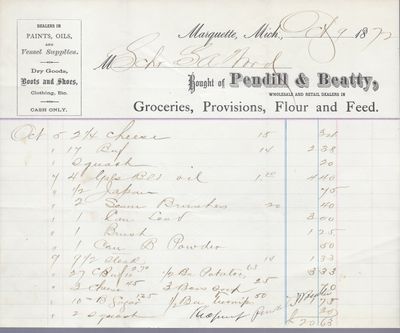 DEALERS IN
PAINTS, OILS,
AND
Vessel Supplies.
Dry Goods,
Boots and Shoes,
Clothing, Etc.
CASH ONLY.
Marquette, Mich., Oct 9 1872
M Schr E A Wood
Bought of Pendill & Beatty,
WHOLESALE AND RETAIL DEALERS IN
Groceries, Provisions, Flour and Feed.
Oct 5 2 1/4 Cheese 15
" 17 Beef 14 2 38
" Squash 20
7 4 Gals Bld oil 1.10 4 40
" 1/2 Japan 75
" 2 Scum Brushes 20 40
" 1 Can Lead 3 00
" 1 Brush 1 25
" 1 Can B Powder 50
9 9 1/2 Steak 14 1 33
" 27 C Beef 2.70 1/2 Bu Potatoes 63 3 33
" 3 45 3 25
" 10 B Sugar 1/2 Bu Turnip 50 75
" 2 Squash 20
20 63